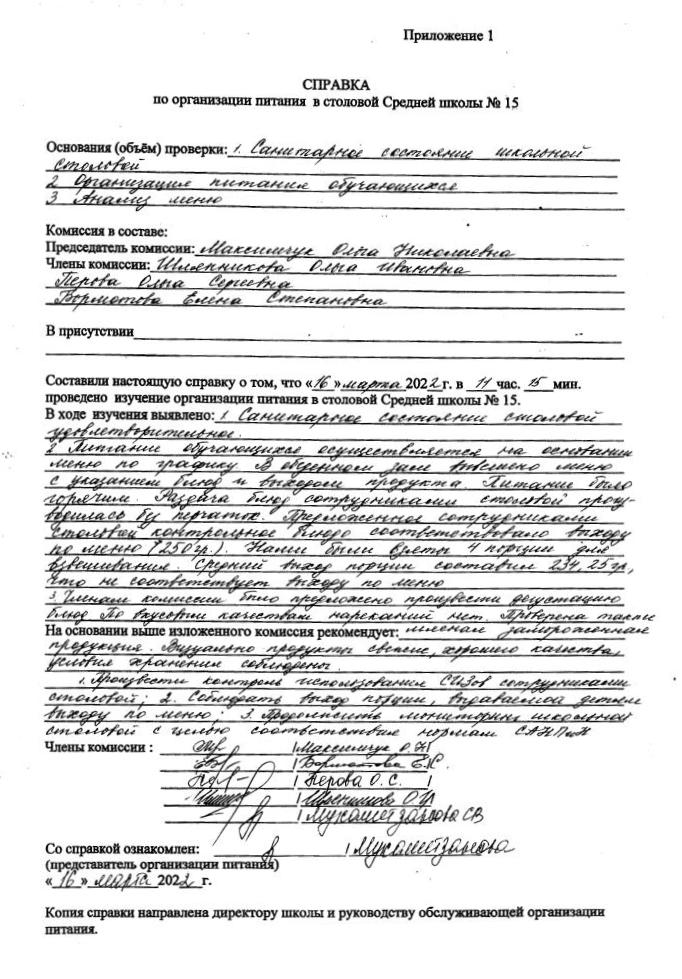 Приложение 1
СПРАВКА
по организации питания в столовой Средней школы № 15
Основания (объём) проверки: 1. Санитарное состояние школьной
столовой
2 Организация питания обучающихся
3 Анализ меню
Комиссия в составе:
Председатель комиссии: Максимчук Ольга Николаевна
Члены комиссии: Шляпникова Ольга Ивановна
Перова Ольга Сергеевна
Бормотова Елена Степановна
В присутствии
Составили настоящую справку о том, что «16» марта 2022 г. в 11 час. 15 мин.
проведено изучение организации питания в столовой Средней школы № 15.
В ходе изучения выявлено: 1 Санитарное состояние столовой
удовлетворительное.
2 Питание обучающихся осуществляется на основании
меню по графику. В обеденном зале вывешено меню
с указанием блюд и выходом продукта. Питание было
горячим. Раздача блюд сотрудниками столовой произ-
водилась без перчаток. Предложенное сотрудниками
столовой контрольное блюдо соответствовало выходу
по меню (250гр.). Нами были взяты 4 порции для
взвешивания. Средний выход порции составил 234,25гр,
что не соответствует выходу по меню
3. Членам комиссии было предложено произвести дегустацию
блюд По вкусовым качествам нареканий нет. Проверена также
На основании выше изложенного комиссия рекомендует: мясная замороженная
продукция. Визуально продукты свежие, хорошего качества,
условия хранения соблюдены.
1. Произвести контроль использования СИЗов сотрудниками
столовой; 2. Соблюдать выход порции, выдаваемой детям
выходу по меню; 3. Продолжить мониторинг школьной
столовой с целью соответствия нормам САНПиН
Члены комиссии : Максимчук О.Н
Бормотова Е.С.
Перова О.С.
Шляпникова О.И
Мухаметзанова СВ
Со справкой ознакомлен: Мухаметзанова
(представитель организации питания)
«16» марта 2022 г.
Копия справки направлена директору школы и руководству обслуживающей организации
питания.